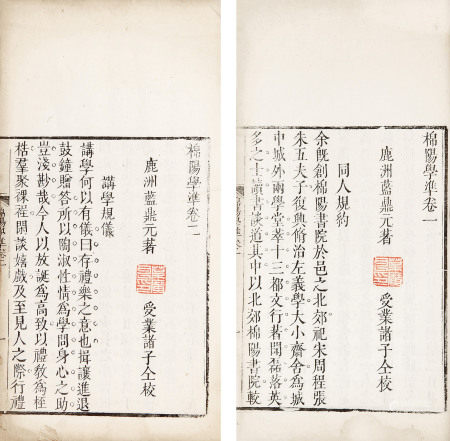 棉陽學準卷一
鹿洲藍鼎元著 受業諸子仝校
同人規約
余既創棉陽書院於邑之北郊祀宋周程張
朱五夫子復興脩治左義學大小齋舍為城
中城外兩學堂萃十三都文行著聞磊落英
多之士讀書談道其中以北郊棉陽書院較
棉陽學準卷二
鹿洲藍鼎元著 受業諸子仝校
講學規儀
講學何以有儀曰存禮樂之意也揖讓進退
鼓鐘贈答所以陶淑性情為學問身心之助
豈淺尠哉今人以放誕為高致以禮教為桎
梏羣聚裸裎閒談嬉戲及至見人之際行禮